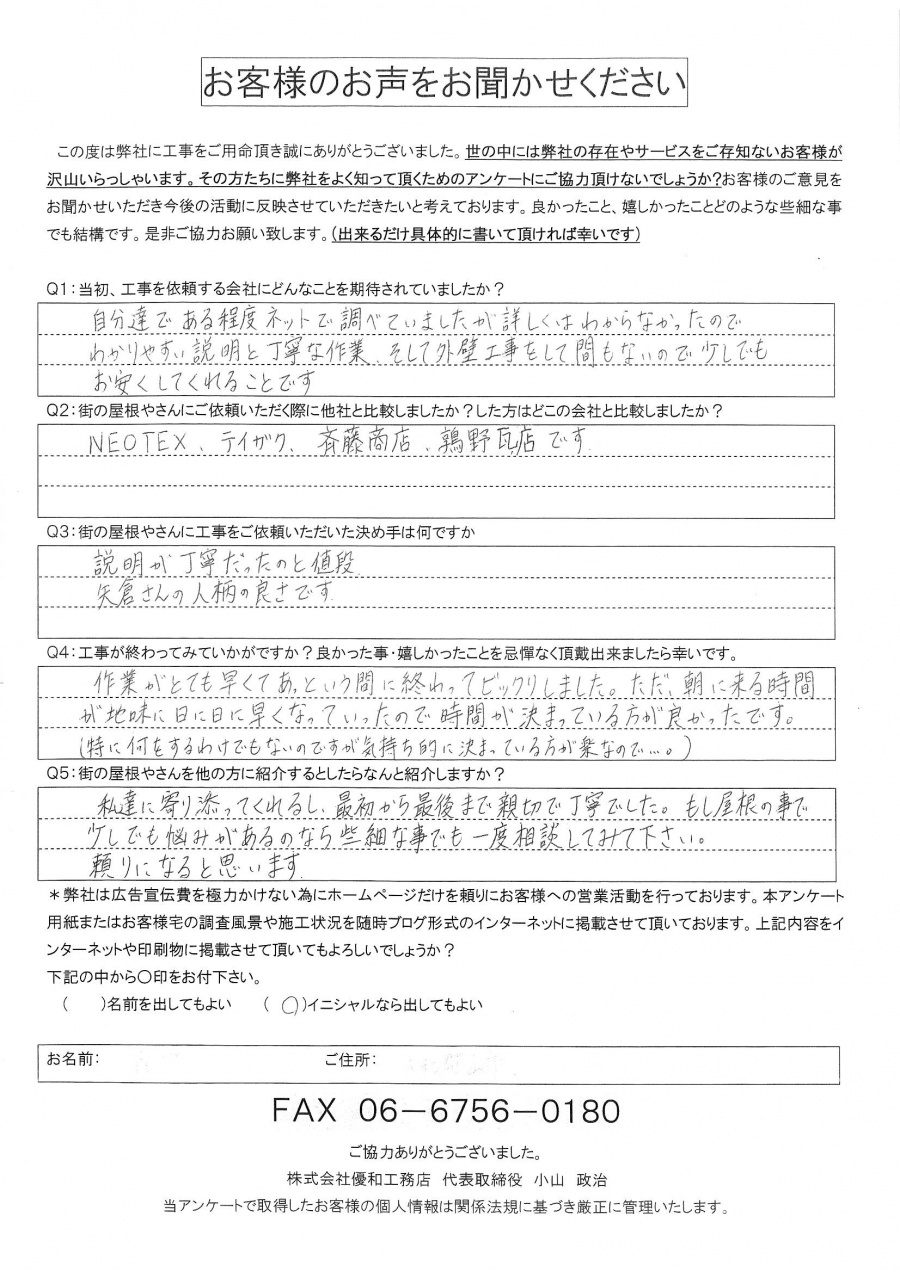 お客様のお声をお聞かせください
この度は弊社に工事をご用命頂き誠にありがとうございました。世の中には弊社の存在やサービスをご存知ないお客様が
沢山いらっしゃいます。その方たちに弊社をよく知って頂くためのアンケートにご協力頂けないでしょうか?お客様のご意見を
お聞かせいただき今後の活動に反映させていただきたいと考えております。良かったこと、嬉しかったことどのような些細な事
でも結構です。是非ご協力お願い致します。(出来るだけ具体的に書いて頂ければ幸いです)
Q1:当初、工事を依頼する会社にどんなことを期待されていましたか?
自分達である程度ネットで調べていましたが詳しくはわからなかったので
わかりやすい説明と丁寧な作業、そして外壁工事をして間もないので少しでも
お安くしてくれることです
Q2:街の屋根やさんにご依頼いただく際に他社と比較しましたか?した方はどこの会社と比較しましたか?
NEOTEX、テイガク、斉藤商店、鶉野瓦店です.
Q3:街の屋根やさんに工事をご依頼いただいた決め手は何ですか
説明が丁寧だったのと値段.
矢倉さんの人柄の良さです.
Q4:工事が終わってみていかがですか?良かった事・嬉しかったことを忌憚なく頂戴出来ましたら幸いです。
作業がとても早くてあっという間に終わってビックリしました。ただ、朝に来る時間
が地味に日に日に早くなっていったので時間が決まっている方が良かったです。
(特に何をするわけでもないのですが気持ち的に決まっている方が楽なので…。)
Q5:街の屋根やさんを他の方に紹介するとしたらなんと紹介しますか?
私達に寄り添ってくれるし、最初から最後まで親切で丁寧でした。もし屋根の事で
少しでも悩みがあるのなら些細な事でも一度相談してみて下さい。
頼りになると思います.
*弊社は広告宣伝費を極力かけない為にホームページだけを頼りにお客様への営業活動を行っております。本アンケート
用紙またはお客様宅の調査風景や施工状況を随時ブログ形式のインターネットに掲載させて頂いております。上記内容をイ
ンターネットや印刷物に掲載させて頂いてもよろしいでしょうか?
下記の中から〇印をお付下さい。
( )名前を出してもよい (〇)イニシャルなら出してもよい
お名前: ご住所:
FAX 06-6756-0180
ご協力ありがとうございました。
株式会社優和工務店 代表取締役 小山 政治
当アンケートで取得したお客様の個人情報は関係法規に基づき厳正に管理いたします。